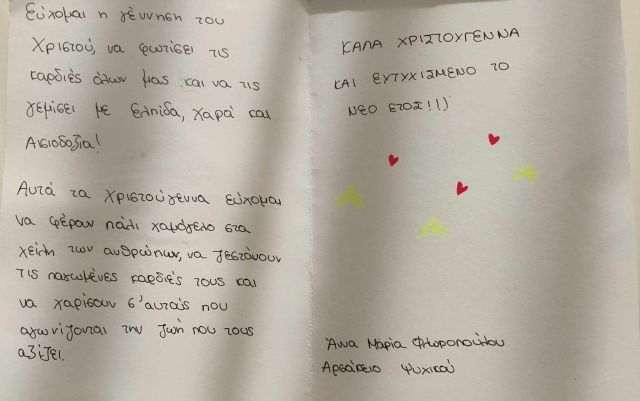 Εύχομαι η γέννηση του
Χριστού, να φωτίσει τις
καρδιές όλων μας και να τις
γεμίσει με ελπίδα, χαρά και
Αισιοδοξία!
Αυτά τα Χριστούγεννα εύχομαι
να φέρουν πάλι χαμόγελο στα
χείλη των ανθρώπων, να ζεστάνουν
τις παγωμένες καρδιές τους και
να χαρίσουν σ' αυτούς που
αγωνίζονται την ζωή που τους
αξίζει.
ΚΑΛΑ ΧΡΙΣΤΟΥΓΕΝΝΑ
ΚΑΙ ΕΥΤΥΧΙΣΜΕΝΟ ΤΟ
ΝΕΟ ΕΤΟΣ!!)
Άννα Μαρία
Αρσάκειο Ψυχικού